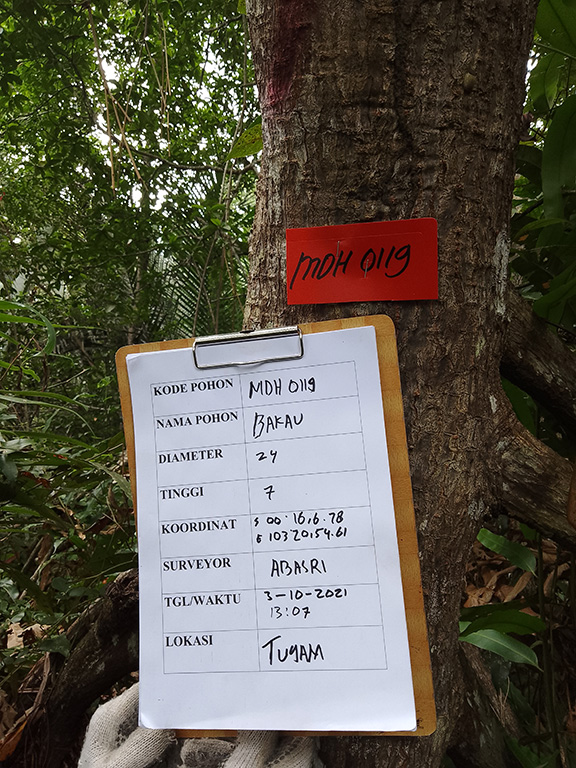 MDH 0119
KODE POHON MDH 0119
NAMA POHON BAKAU
DIAMETER 24
TINGGI 7
KOORDINAT S 00°16.16.78
E 103.20.54.61
SURVEYOR ABASRI
TGL/WAKTU 3-10-2021
13:07
LOKASI TUGAM